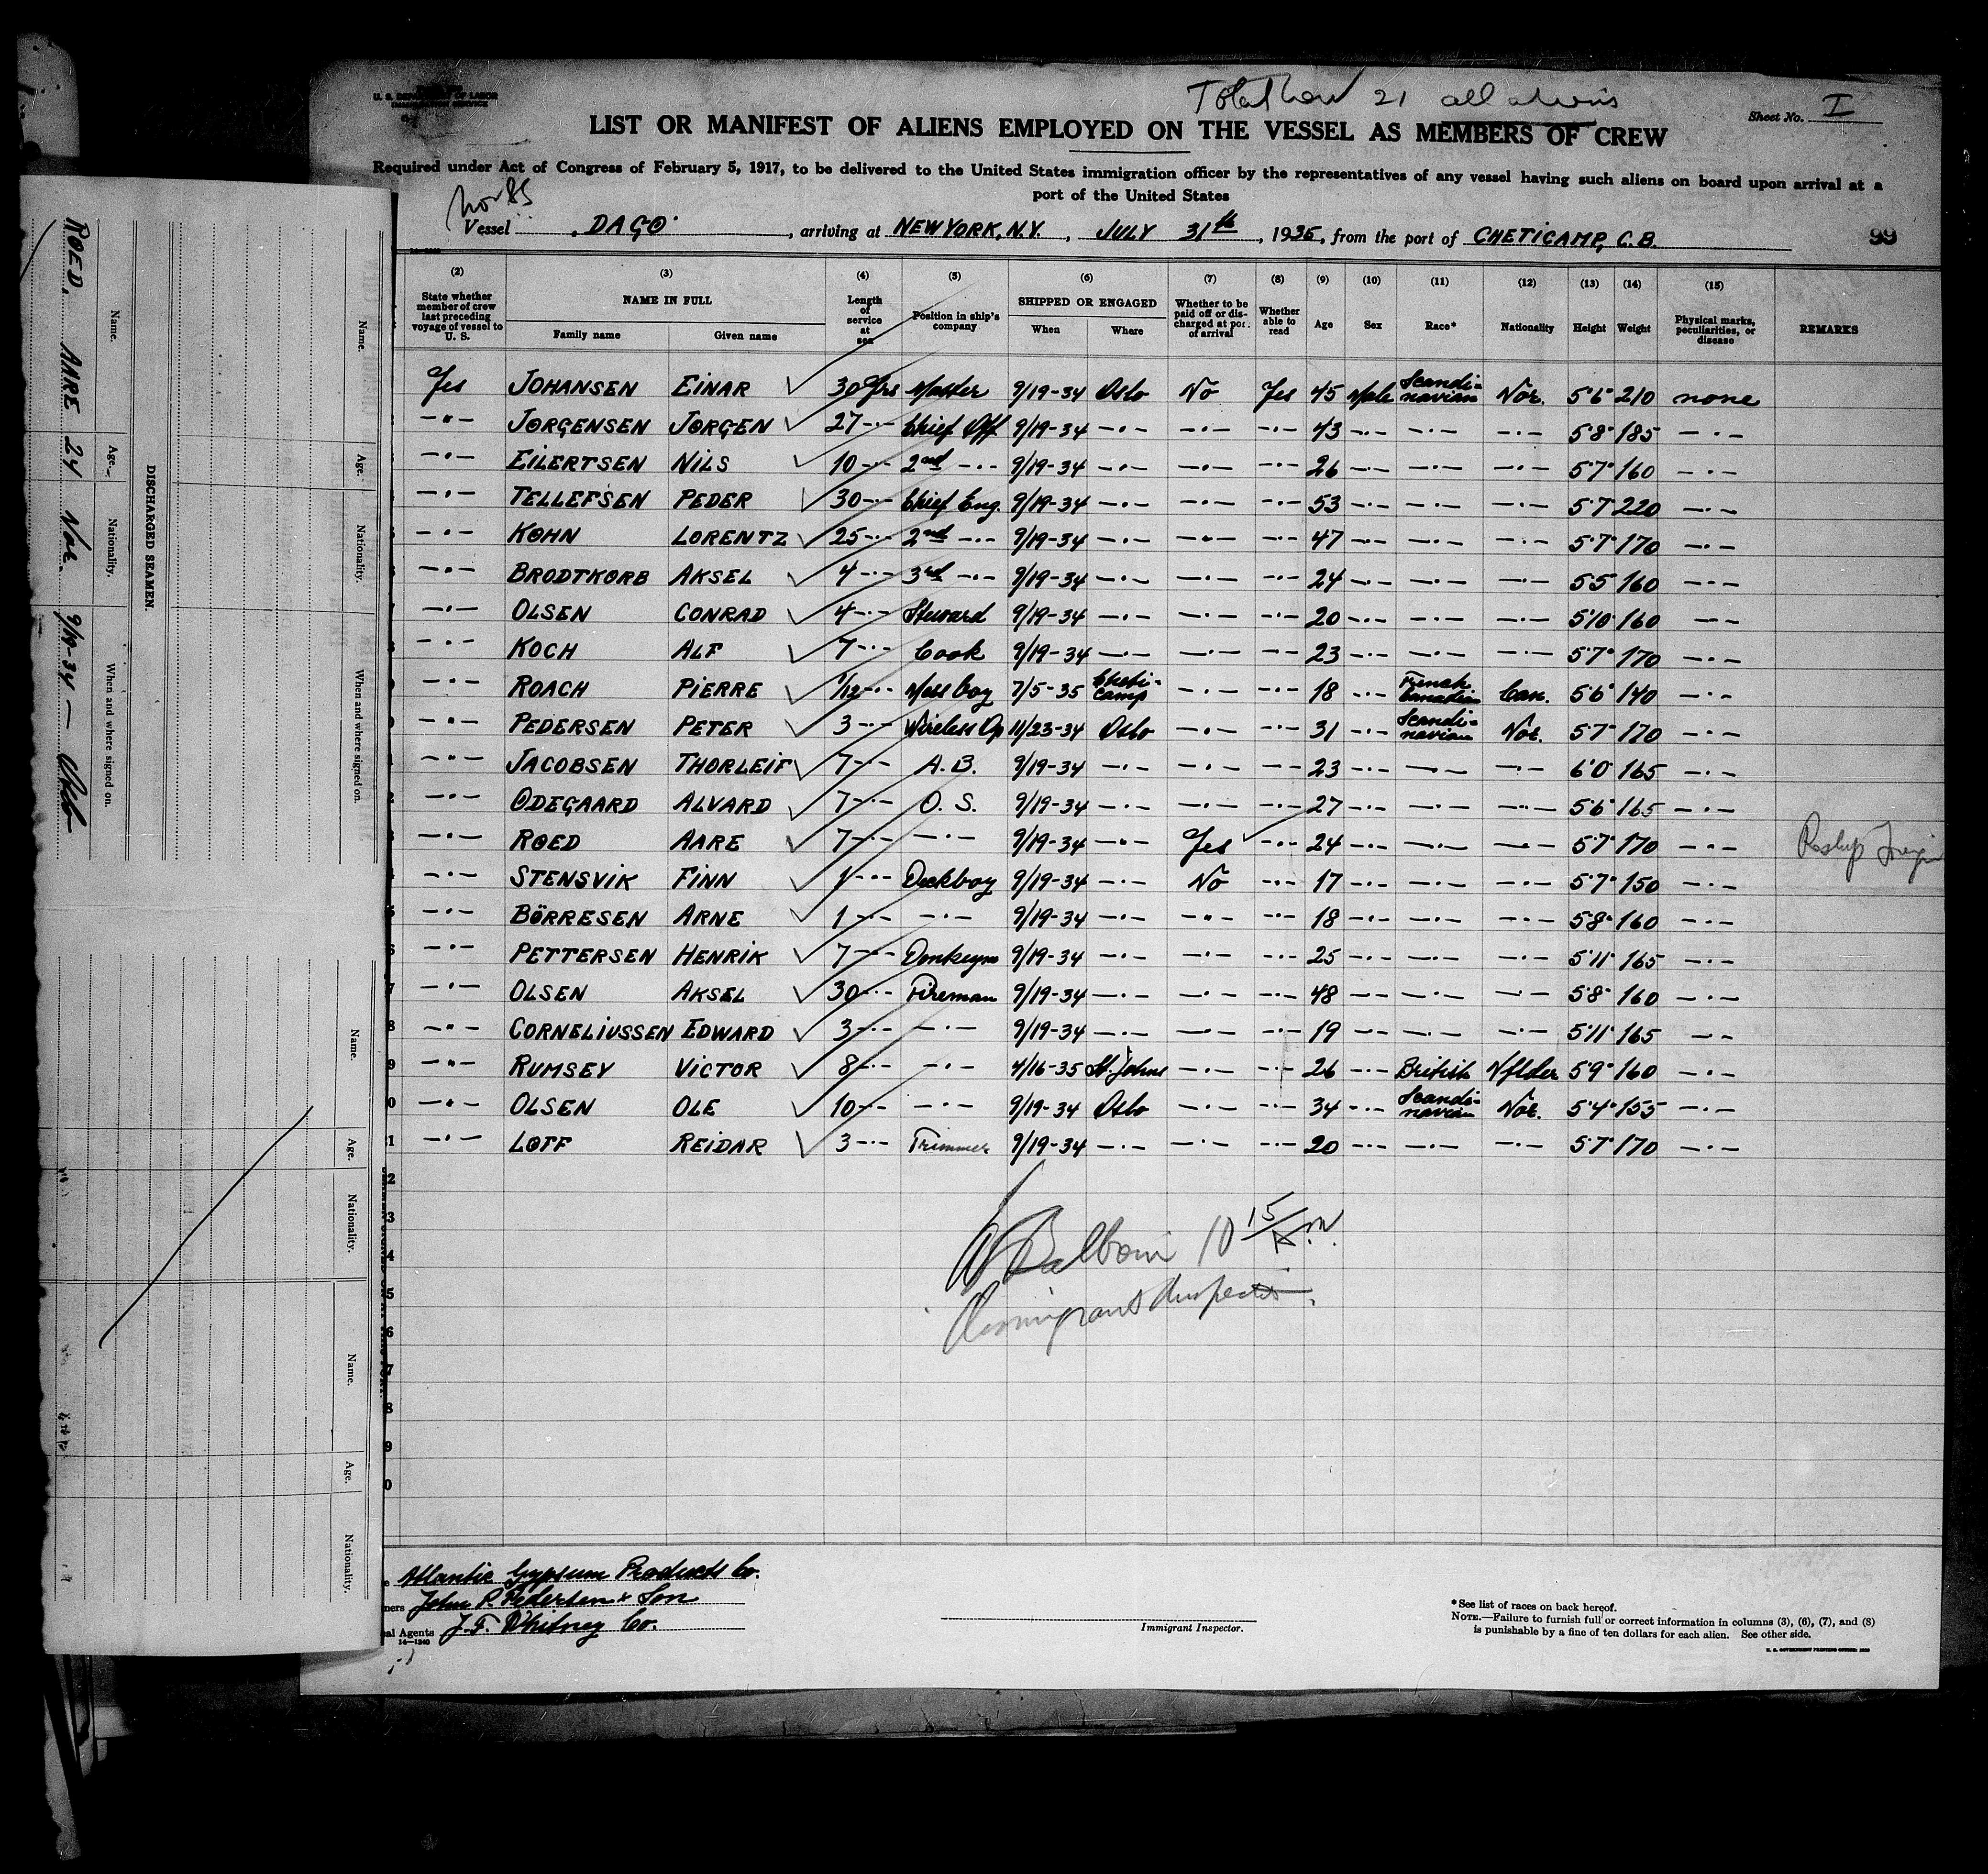 U. S. DEPARTMENT OF LABOR
IMMIGRATION SERVICE
Total crew 21 all aliens
Sheet No. I
LIST OR MANIFEST OF ALIENS EMPLOYED ON THE VESSEL AS MEMBERS OF CREW
Required under Act of Congress of February 5, 1917, to be delivered to the United States immigration officer by the representatives of any vessel having such aliens on board upon arrival at a
port of the United States
Nor SS
Vessel "DAGO", arriving at NEW YORK, N.Y., JULY 31th, 1935, from the port of CHETICAMP, C.B.
99
(2) (3) (4) (5) (6) (7) (8) (9) (10) (11) (12) (13) (14) (15)
State whether member of crew last preceding voyage of vessel to U. S. NAME IN FULL Family name Given name Length of service at sea Position in ship's company SHIPPED OR ENGAGED When Where Whether to be paid off or discharged at port of arrival Whether able to read Age Sex Race* Nationality Height Weight Physical marks, peculiarities, or disease REMARKS
Yes JOHANSEN EINAR ✓ 30 Yrs Master 9/19-34 Oslo No Yes 45 Male Scandi-navian Nor. 5'6" 210 none
-"- JØRGENSEN JØRGEN ✓ 27 -"- Chief Off 9/19-34 -"- -"- -"- 43 -"- -"- -"- 5'8" 185 -"-
-"- EILERTSEN NILS ✓ 10 -"- 2nd -"- 9/19-34 -"- -"- -"- 26 -"- -"- -"- 5'7" 160 -"-
-"- TELLEFSEN PEDER ✓ 30 -"- Chief Eng. 9/19-34 -"- -"- -"- 53 -"- -"- -"- 5'7" 220 -"-
-"- KØHN LORENTZ ✓ 25 -"- 2nd -"- 9/19-34 -"- -"- -"- 47 -"- -"- -"- 5'7" 170 -"-
-"- BRODTKORB AKSEL ✓ 4 -"- 3rd -"- 9/19-34 -"- -"- -"- 24 -"- -"- -"- 5'5" 160 -"-
-"- OLSEN CONRAD ✓ 4 -"- Steward 9/19-34 -"- -"- -"- 20 -"- -"- -"- 5'10" 160 -"-
-"- KOCH ALF ✓ 7 -"- Cook 9/19-34 -"- -"- -"- 23 -"- -"- -"- 5'7" 170 -"-
-"- ROACH PIERRE ✓ 1/12 -"- Mess boy 7/5-35 Cheti-camp -"- -"- 18 -"- French Canadian Can. 5'6" 140 -"-
-"- PEDERSEN PETER ✓ 3 -"- Wireless Op 11/23-34 Oslo -"- -"- 31 -"- Scandi-navian Nor. 5'7" 170 -"-
-"- JACOBSEN THORLEIF ✓ 7 -"- A.B. 9/19-34 -"- -"- -"- 23 -"- -"- -"- 6'0" 165 -"-
-"- ØDEGAARD ALVARD ✓ 7 -"- O. S. 9/19-34 -"- -"- -"- 27 -"- -"- -"- 5'6" 165 -"-
-"- RØED AARE ✓ 7 -"- -"- 9/19-34 -"- Yes ✓ -"- 24 -"- -"- -"- 5'7" 170 -"-
-"- STENSVIK FINN ✓ 1 -"- Deckboy 9/19-34 -"- No -"- 17 -"- -"- -"- 5'7" 150 -"-
-"- BÖRRESEN ARNE ✓ 1 -"- -"- 9/19-34 -"- -"- -"- 18 -"- -"- -"- 5'8" 160 -"-
-"- PETTERSEN HENRIK ✓ 7 -"- Donkeym 9/19-34 -"- -"- -"- 25 -"- -"- -"- 5'11" 165 -"-
-"- OLSEN AKSEL ✓ 30 -"- Fireman 9/19-34 -"- -"- -"- 48 -"- -"- -"- 5'8" 160 -"-
-"- CORNELIUSSEN EDWARD ✓ 3 -"- -"- 9/19-34 -"- -"- -"- 19 -"- -"- -"- 5'11" 165 -"-
-"- RUMSEY VICTOR ✓ 8 -"- -"- 4/16-35 St. Johns -"- -"- 26 -"- British Nflder 5'9" 160 -"-
-"- OLSEN OLE ✓ 10 -"- -"- 9/19-34 Oslo -"- -"- 34 -"- Scandi-navian Nor. 5'4" 155 -"-
-"- LØFF REIDAR ✓ 3 -"- Trimmer 9/19-34 -"- -"- -"- 20 -"- -"- -"- 5'7" 170 -"-
10 15/A.M.
Immigrant Inspector.
Atlantic Gypsum Products Co.
John P. Pedersen & Son
Agents J. F. Whitney Co.
14—1240
Immigrant Inspector.
*See list of races on back hereof.
NOTE.—Failure to furnish full or correct information in columns (3), (6), (7), and (8)
is punishable by a fine of ten dollars for each alien. See other side.
U. S. GOVERNMENT PRINTING OFFICE
DISCHARGED SEAMEN.
Name. Age. Nationality. When and where signed on.
RØED, AARE 24 Nor. 9/19-34 — Oslo
Name. Age. Nationality. When and where signed on.
Name. Age. Nationality.
Name. Age. Nationality.